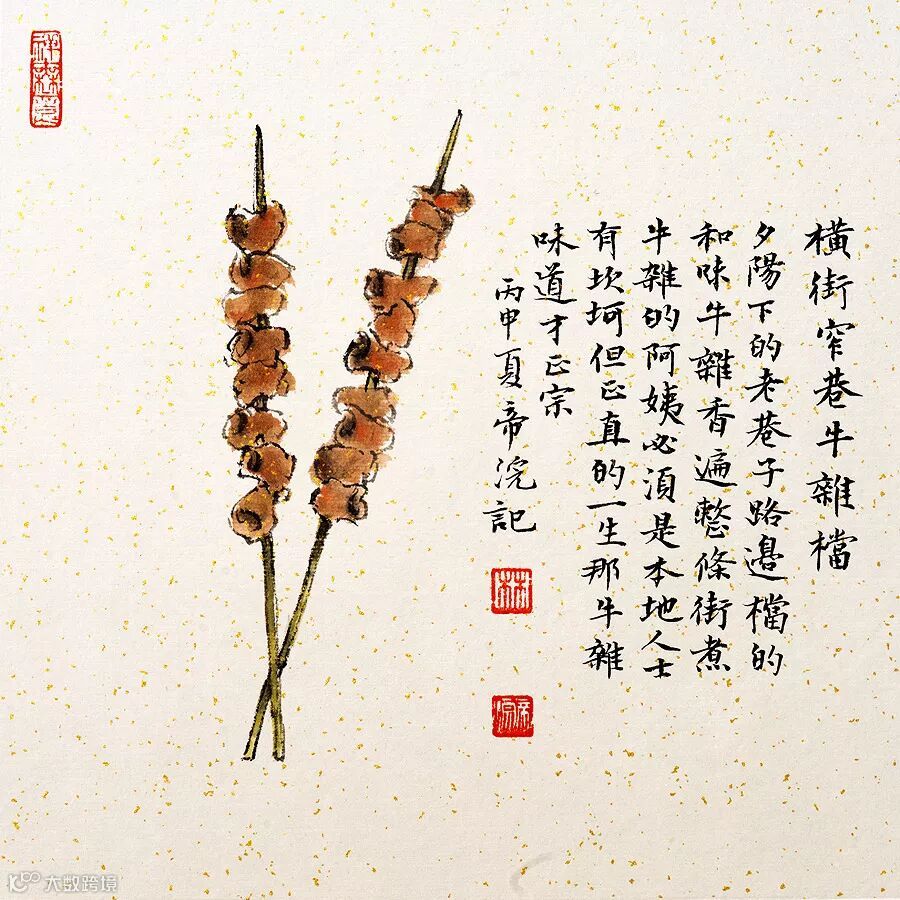 橫街窄巷牛雜檔
夕陽下的老巷子路邊檔的
和味牛雜香遍整條街煮
牛雜的阿姨必須是本地人士
有坎坷但正直的一生那牛雜
味道才正宗
丙申夏帝浣記
林
帝浣
大数跨境